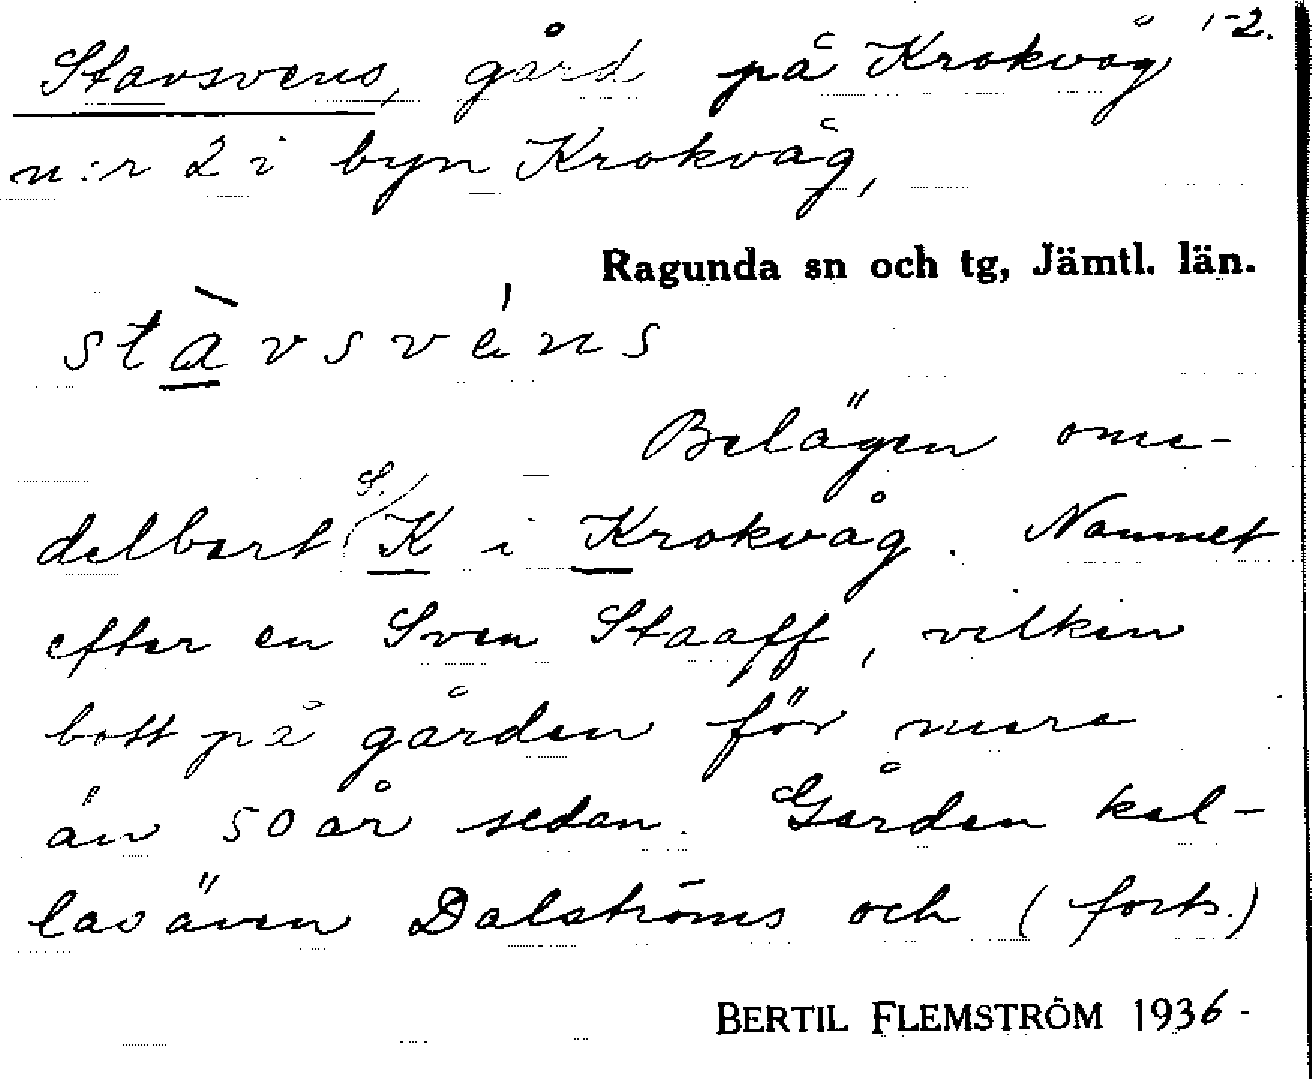 1-2.
Stavsvens, gård på Krokvåg
n:r 2 i byn Krokvåg,
Ragunda sn och tg, Jämtl. län.
stàvsvéns
Belägen ome-
delbart S. K i Krokvåg. Namnet
efter en Sven Staaff, vilken
bott på gården för mera
än 50 år sedan. Gården kal-
las även Dalströms och (forts.)
BERTIL FLEMSTRÖM 1936-